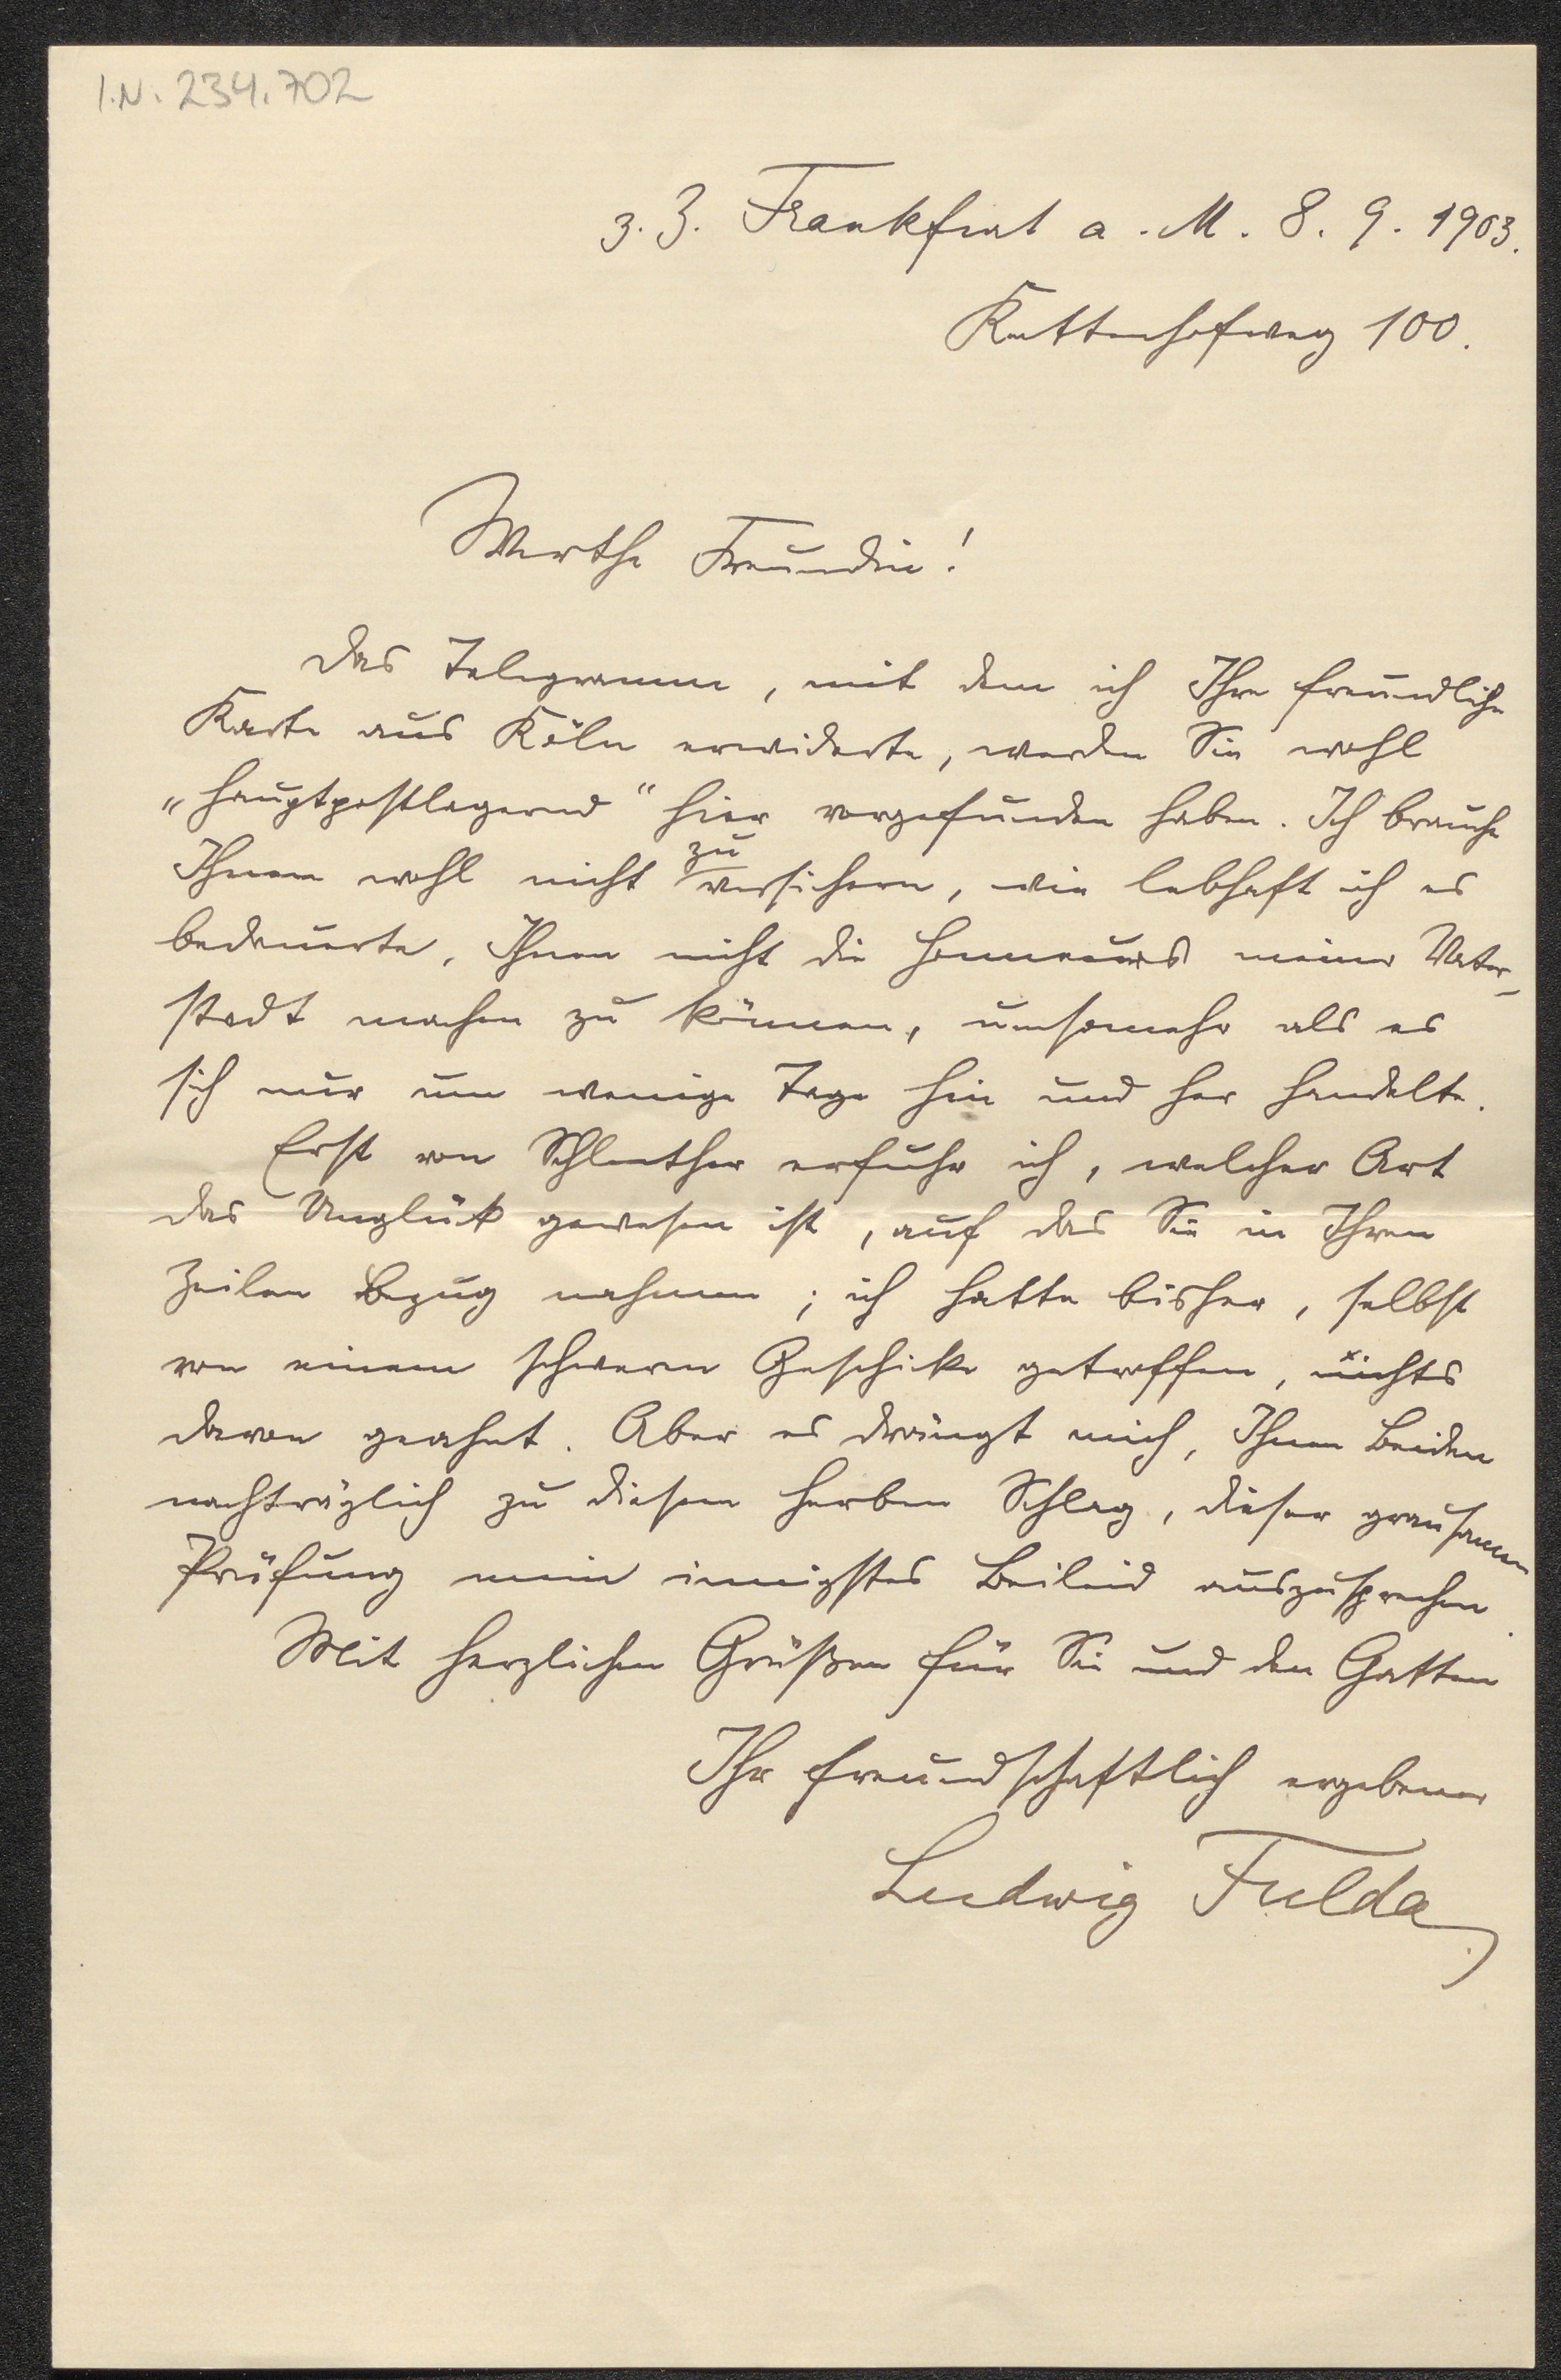 I.N. 234.702
z. Z. Frankfurt a. M. 8. 9. 1903.
Kettenhofweg 100.
Werthe Freundin!
Das Telegramm, mit dem ich Ihre freundliche
Karte aus Köln erwiderte, werden Sie wohl
„hauptpostlagernd“ hier vorgefunden haben. Ich brauche
Ihnen wohl nicht zu versichern, wie lebhaft ich es
bedauerte, Ihnen nicht die Honneurs meiner Vater-
stadt machen zu können, umsomehr als es
sich nur um wenige Tage hin und her handelte.
Erst von Schlenther erfuhr ich, welcher Art
das Unglück gewesen ist, auf das Sie in Ihren
Zeilen Bezug nahmen; ich hatte bisher, selbst
von einem schweren Geschicke getroffen, nichts
davon geahnt. Aber es drängt mich, Ihnen Beiden
nachträglich zu diesem herben Schlag, dieser grausamen
Prüfung mein innigstes Beileid auszusprechen.
Mit herzlichen Grüßen für Sie und den Gatten
Ihr freundschaftlich ergebener
Ludwig Fulda.